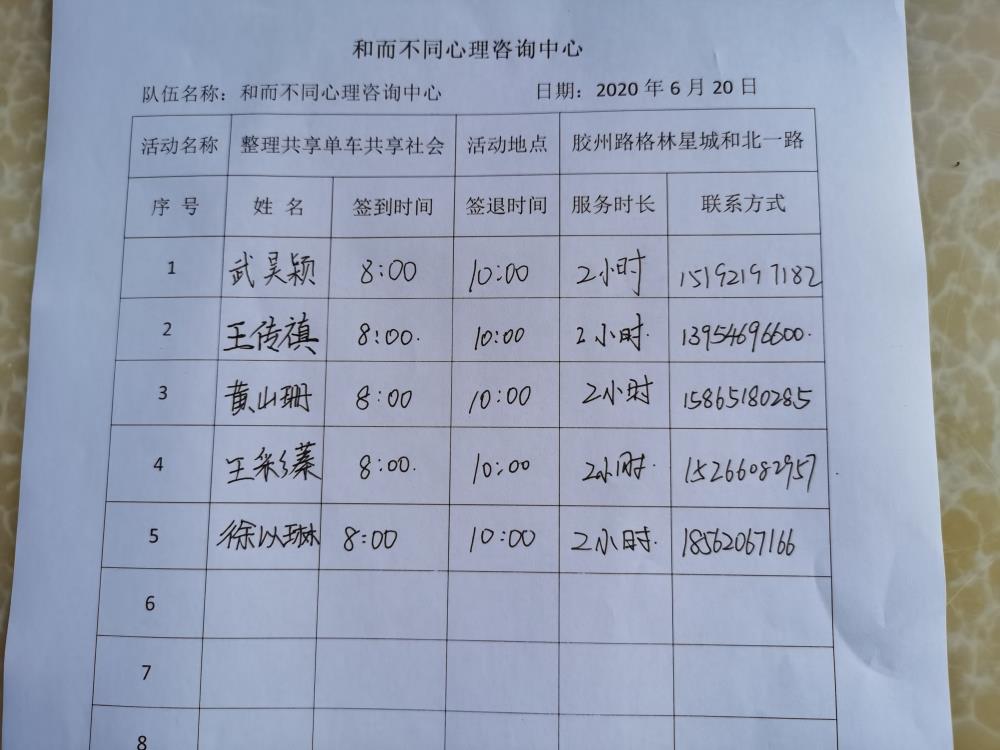 和而不同心理咨询中心
队伍名称：和而不同心理咨询中心 日期：2020 年 6 月 20 日
活动名称 整理共享单车共享社会 活动地点 胶州路格林星城和北一路
序 号 姓 名 签到时间 签退时间 服务时长 联系方式
1 武昊颖 8:00 10:00 2小时 15192197182
2 王传祺 8:00. 10:00 2小时. 13954696600.
3 黄山珊 8:00 10:00 2小时 15865180285
4 王彩蓁 8:00. 10:00 2小时. 15266082957
5 徐以琳 8:00 10:00 2小时. 18562067166
6
7
8